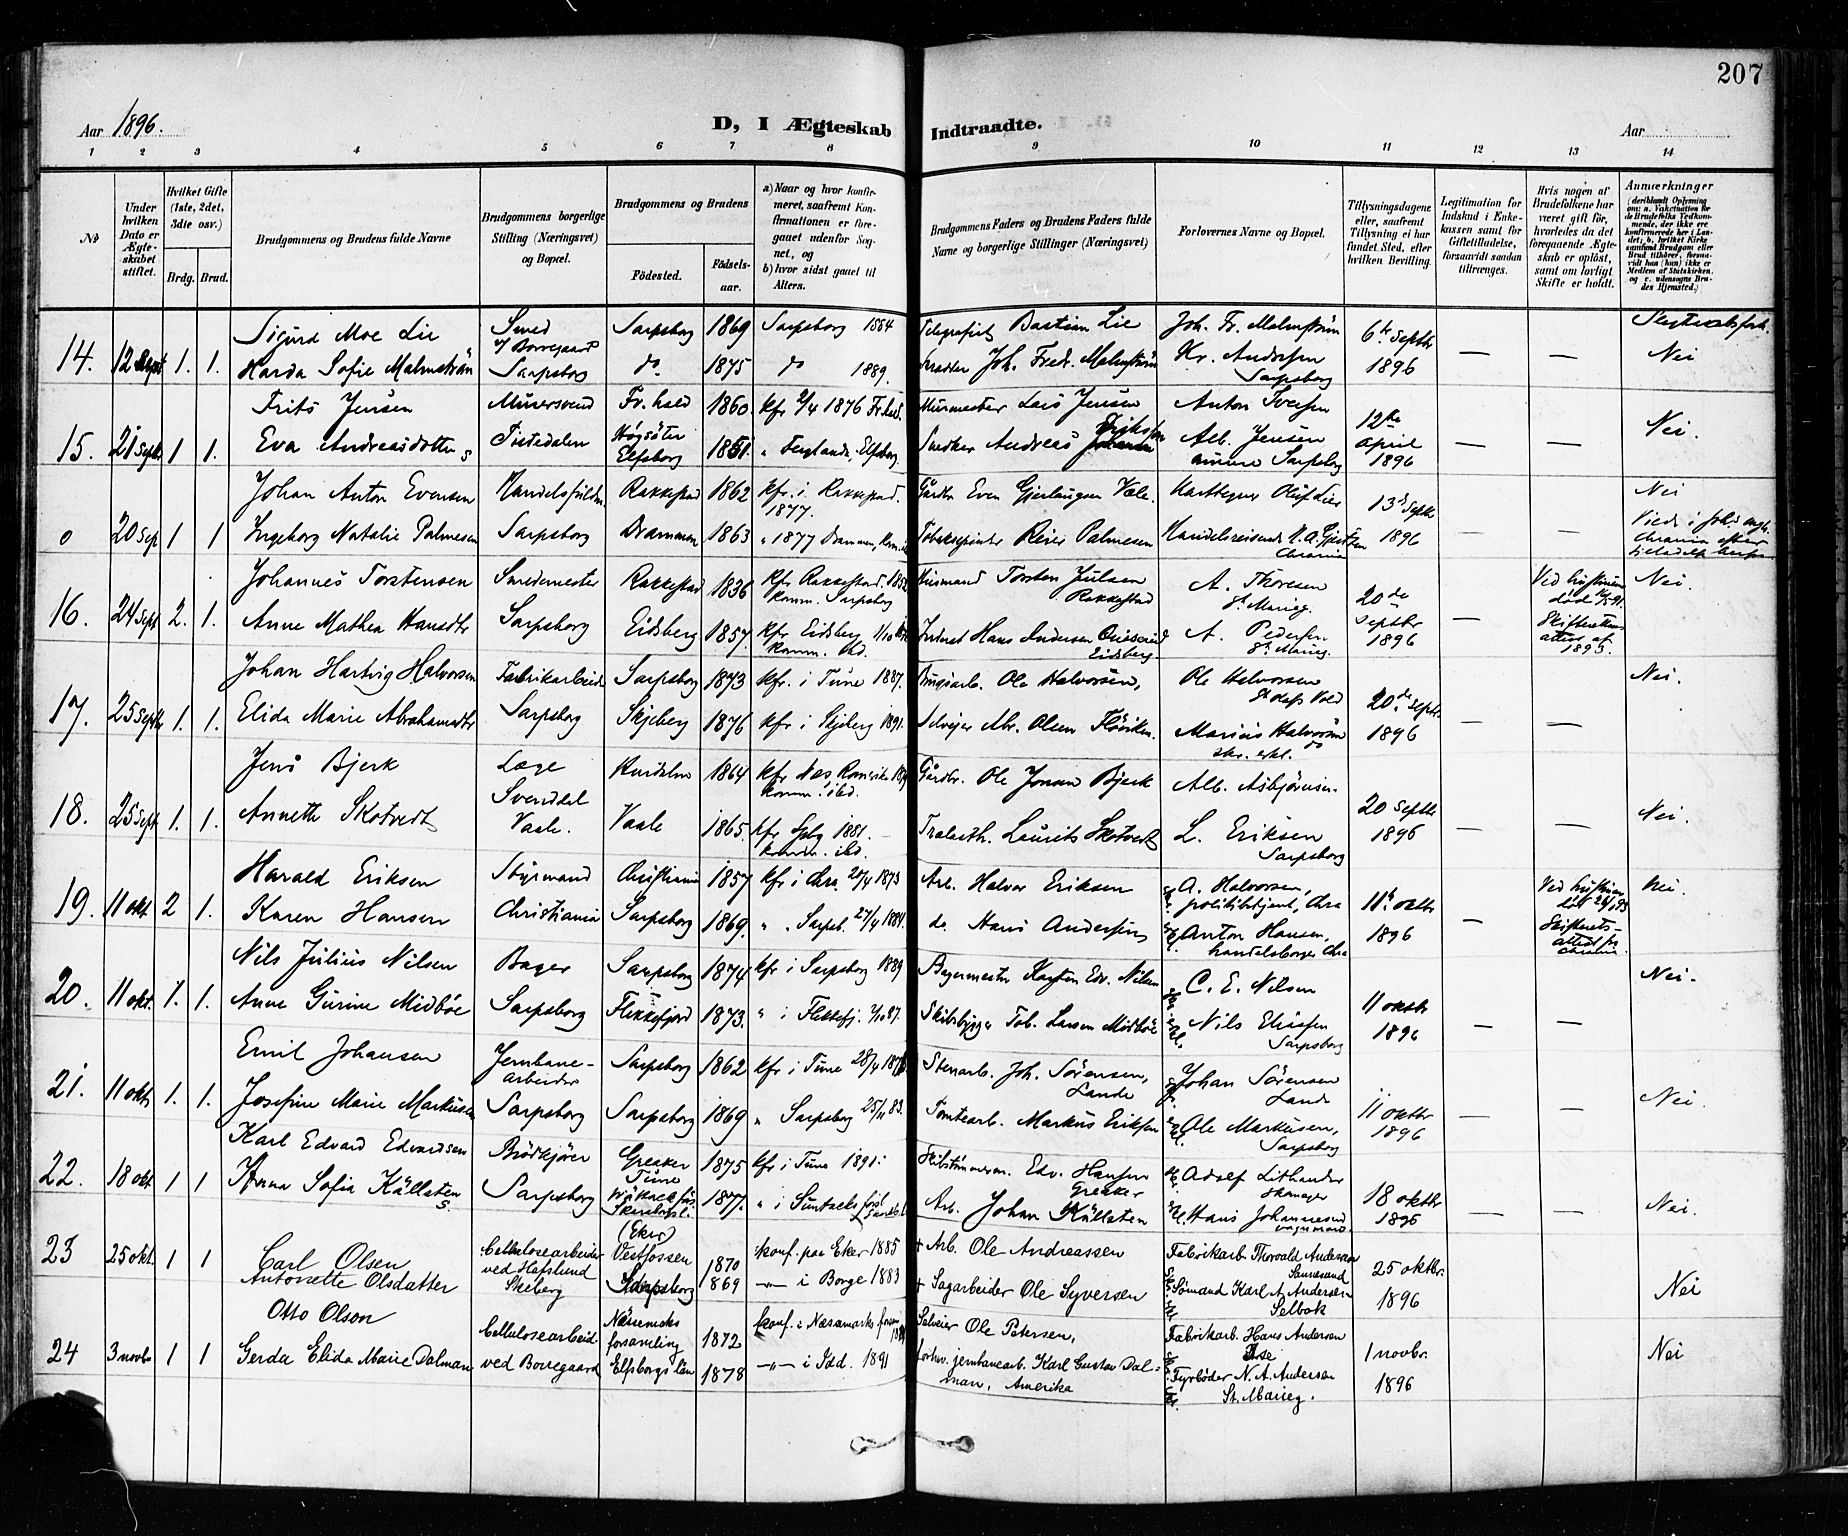 207
Aar 1896.
D, I Ægteskab Indtraadte.
Aar
1 2 3 4 5 6 7 8 9 10 11 12 13 14
No
Under hvilken Dato er Ægteskabet stiftet.
Hvilket Gifte (1ste, 2det, 3die osv.)
Brdg. Brud.
Brudgommens og Brudens fulde Navne
Brudgommens borgerlige Stilling (Næringsvei) og Bopæl.
Brudgommens og Brudens
Fødested.
Fødselsaar.
a) Naar og hvor konfirmeret, saafremt Konfirmationen er foregaaet udenfor Sognet, og
b) hvor sidst gaaet til Alters.
Brudgommens Faders og Brudens Faders fulde Navne og borgerlige Stillinger (Næringsvei)
Forlovernes Navne og Bopæl.
Tillysningsdagene eller, saafremt Tillysning ei har fundet Sted, efter hvilken Bevilling.
Legitimation for Indskud i Enkekassen samt for Giftetilladelse, forsaavidt saadan tiltrænges.
Hvis nogen af Brudefolkene har været gift før, hvorledes da det foregaaende Ægteskab er opløst, samt om lovligt Skifte er holdt.
Anmærkninger
14. 12 Sept 1. 1.
Sigurd Moe Lie Smed v/ Borregaard Sarpsborg 1869 Sarpsborg 1884 Telegrafist Bastian Lie Joh. Fr. Malmstrøm 6te septbr
Harda Sofie Malmstrøm Sarpsborg do 1875 do 1889. Skrædder Joh. Fredr. Malmstrøm Kr. Andersen Sarpsborg 1896 — — Nei
15. 21 Sept 1 1.
Frits Jensen Murersvend Fr.hald 1860. kfr 2/4 1876 Fr.hald. Murmester Lars Jensen Anton Iversen 12te april 1896
Eva Andreasdotter s Tistedalen Elfsborg Snedker Andreas Alb. Jensen Sarpsborg — — Nei.
0 20 sep 1 1
Johan Anton Evensen Rakkestad 1862 kfr. i Rakkestad. 1877. Gårdbr. Even Gjerlaugsen Væle. Oluf Lier 13de septbr Nei
Ingeborg Natalie Palmesen Sarpsborg Drammen 1863 " 1877 Drammen, Palmesen Handelsreisende 1896 —
16. 24 sept 2. 1.
Johannes Torstensen Smedemester Rakkestad 1836 kfr Rakkestad. komm. Sarpsborg Husmand Torsten Julsen Rakkestad A. Thoresen St. Marieg. 20de septbr 1896 Nei.
Anne Mathea Hansdtr Sarpsborg Eidsberg 1857. kfr Eidsberg komm. ibd. Inderst Hans Andersen Eidsberg. A. Pedersen St. Marieg. — Skifteretsattest af 1895.
17. 25 sept 1. 1.
Johan Hartvig Halvorsen Fabrikarbeid. Sarpsborg 1873 kfr. i Tune 1887. Brugsarb. Ole Halvorsen, Ole Halvorsen St. Olafs Vold 20de septbr. Nei.
Elida Marie Abrahamsdtr Sarpsborg Skjeberg 1876 kfr i Skjeberg 1891. Selveier Abr. Olsen Flöviken. Marius Halvorsen do 1896 — —
18. 25 Sept 1. 1.
Jens Bjerk Læge Svendal Hurdalen 1864 kfr Næs Romerike komm. ibd. Gårdbr. Ole Jensen Bjerk Alb. Asbjørnsen 20 septbr
Annette Skotvedt Vaale. Vaale 1865. kfr Spbg 1881. komm. ibd. Laurits Skotvedt L. Eriksen Sarpsborg 1896 — — Nei.
19. 11 okt 2 1.
Harald Eriksen Styrmand Christiania 1857 kfr i Chra. 20/4 1873 Arb. Halvor Eriksen A. Halvorsen, politibetjent, Chra 11te oktbr Nei.
Karen Hansen Christiania Sarpsborg 1869. " " Sarpsb. 27/4 1884. do. Hans Andersen Anton Hansen, Chra 1896 — Skifterets-attest fr. Chrania.
20. 11 okt. 1. 1.
Nils Julius Nilsen Bager Sarpsborg 1874 kfr i Sarpsborg 1889 Bagermester Karsten Edv. Nilsen C. E. Nilsen 11 oktbr Nei.
Anne Gurine Midbøe Sarpsborg Flekkefjord 1873. " i Flekkefj. Skibsbygger Tob. Larsen Midbøe Nils Eliassen Sarpsborg 1896 — —
21. 11 okt 1. 1.
Emil Johansen Jernbane-arbeider Sarpsborg 1862 kfr i Tune 28/4 Stenarb. Joh. Sørensen, Lande Johan Sørensen Lande 11 oktbr
Josefine Marie Markusen Sarpsborg Sarpsborg 1869 " Sarpsborg 25/11 83. Tomtearb. Markus Eriksen Ole Markusen, Sarpsborg 1896 — — Nei.
22. 18 okt 1 1
Karl Edvard Edvardsen Brødkjører Greaker Tune 1875 kfr i Tune 1891. Edv. Hansen Greaker Adolf Lithander 18 oktbr
Anna Sofia Källsten s. Sarpsborg 1877. " i Suntacks Arb. Johan Källsten Hans Johannesen 1896 — — Nei.
23 25 okt. 1 1
Carl Olsen Cellulosearbeider ved Hafslund (Eker) Vestfossen 1870 konf. paa Eker 1885 + Arb. Ole Andreassen Fabrikarb. Thorvald Andersen Sannesund 25 oktbr.
Antonette Olsdatter Skeberg Sarpsborg 1869 —"— i Borge 1883 + Sagarbeider Ole Syversen Sømand Karl A. Andersen Selbak 1896 Nei
24 3 novbr 1 1
Otto Olson Cellulosearbeid. Næsemarks forsamling 1872 konf. i Næsemarks forsaml. Selveier Ole Petersen, Fabrikarb. Hans Andersen 1 novbr.
Gerda Elida Marie Dalman ved Borregaard Elfsborgs län 1878 —"— i Idd. 1891 forhv. jernbanearb. Karl Gustav Dalman, Amerika Fyrbøder N. A. Andersen St. Marieg. 1896 Nei